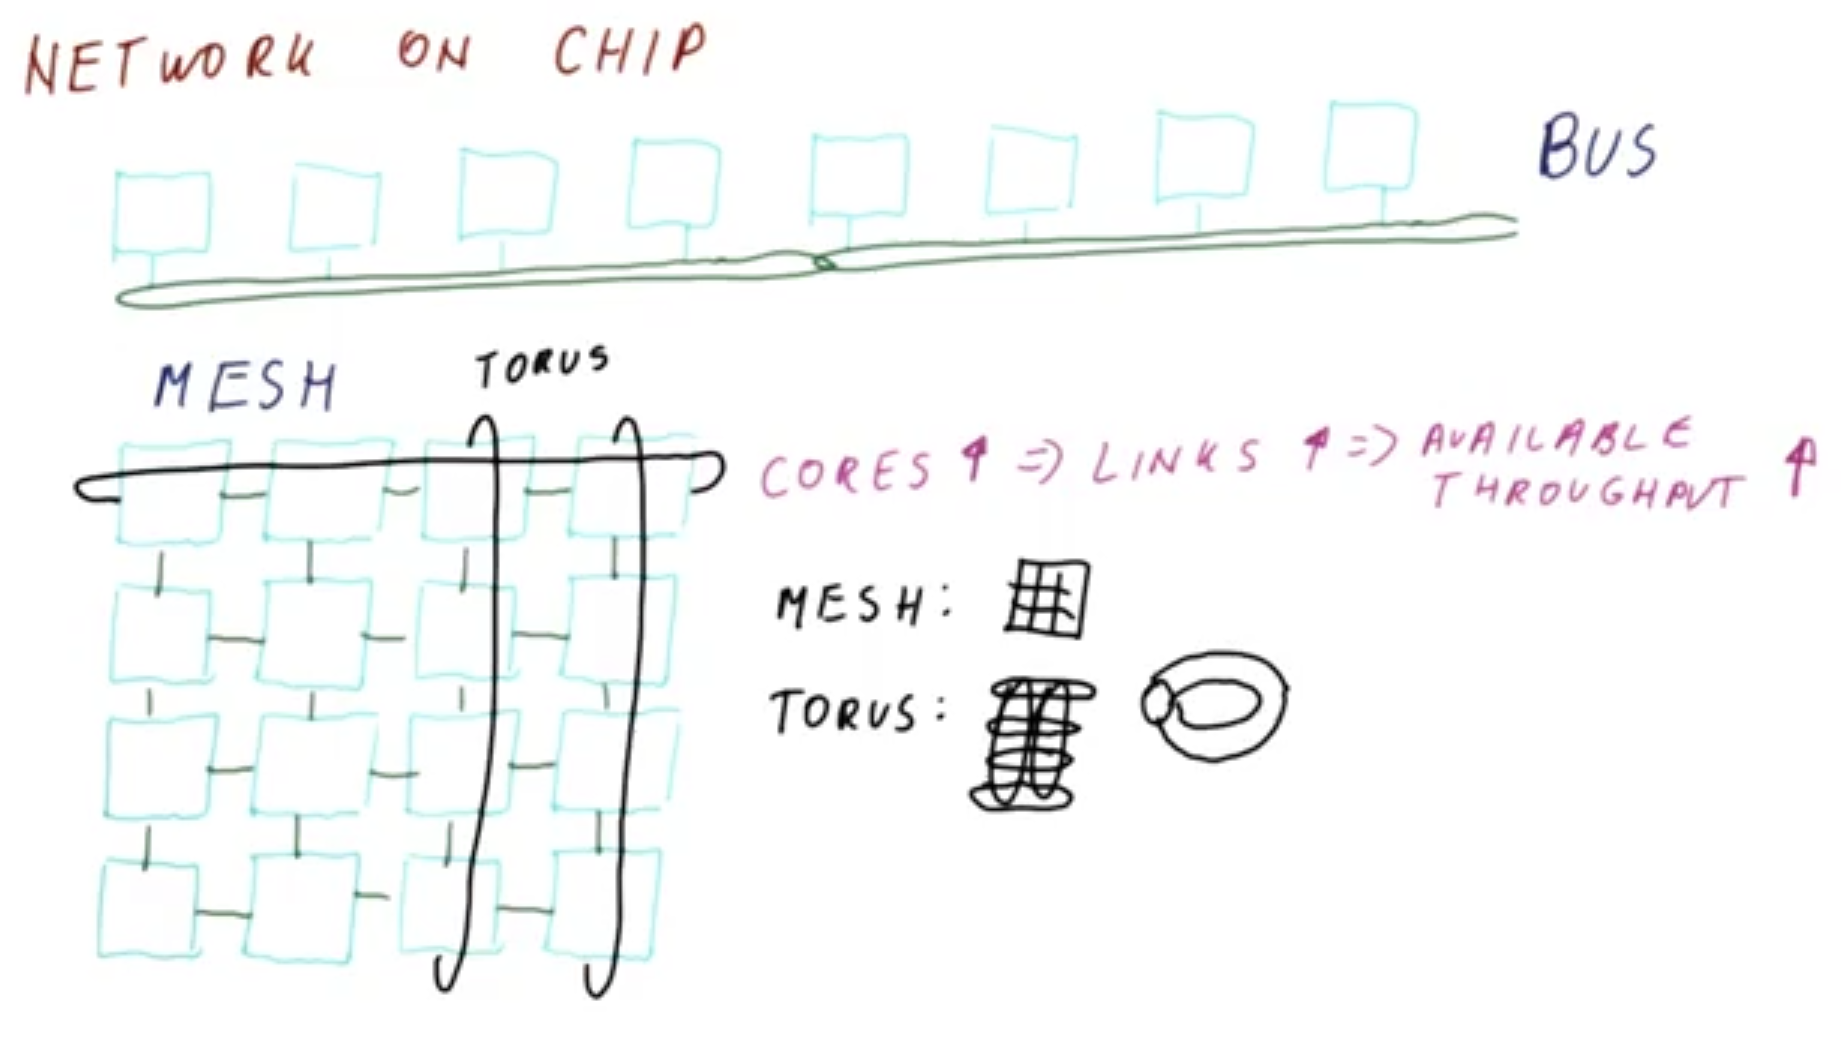 NETWORK ON CHIP
BUS
MESH
TORUS
CORES ↑ => LINKS ↑ => AVAILABLE THROUGHPUT ↑
MESH:
TORUS: